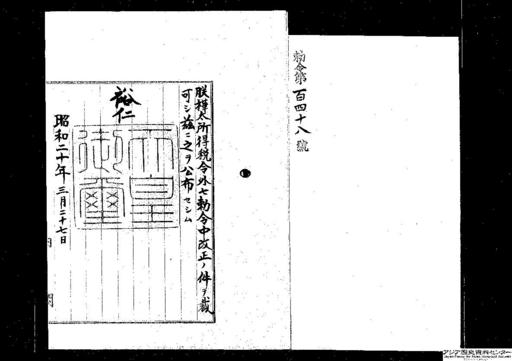 勅令第百四十八號
朕樺太所得税令外七勅令中改正ノ件ヲ裁
可シ茲ニ之ヲ公布セシム
裕仁
天皇御璽
昭和二十年三月二十七日
内閣
アジア歴史資料センター